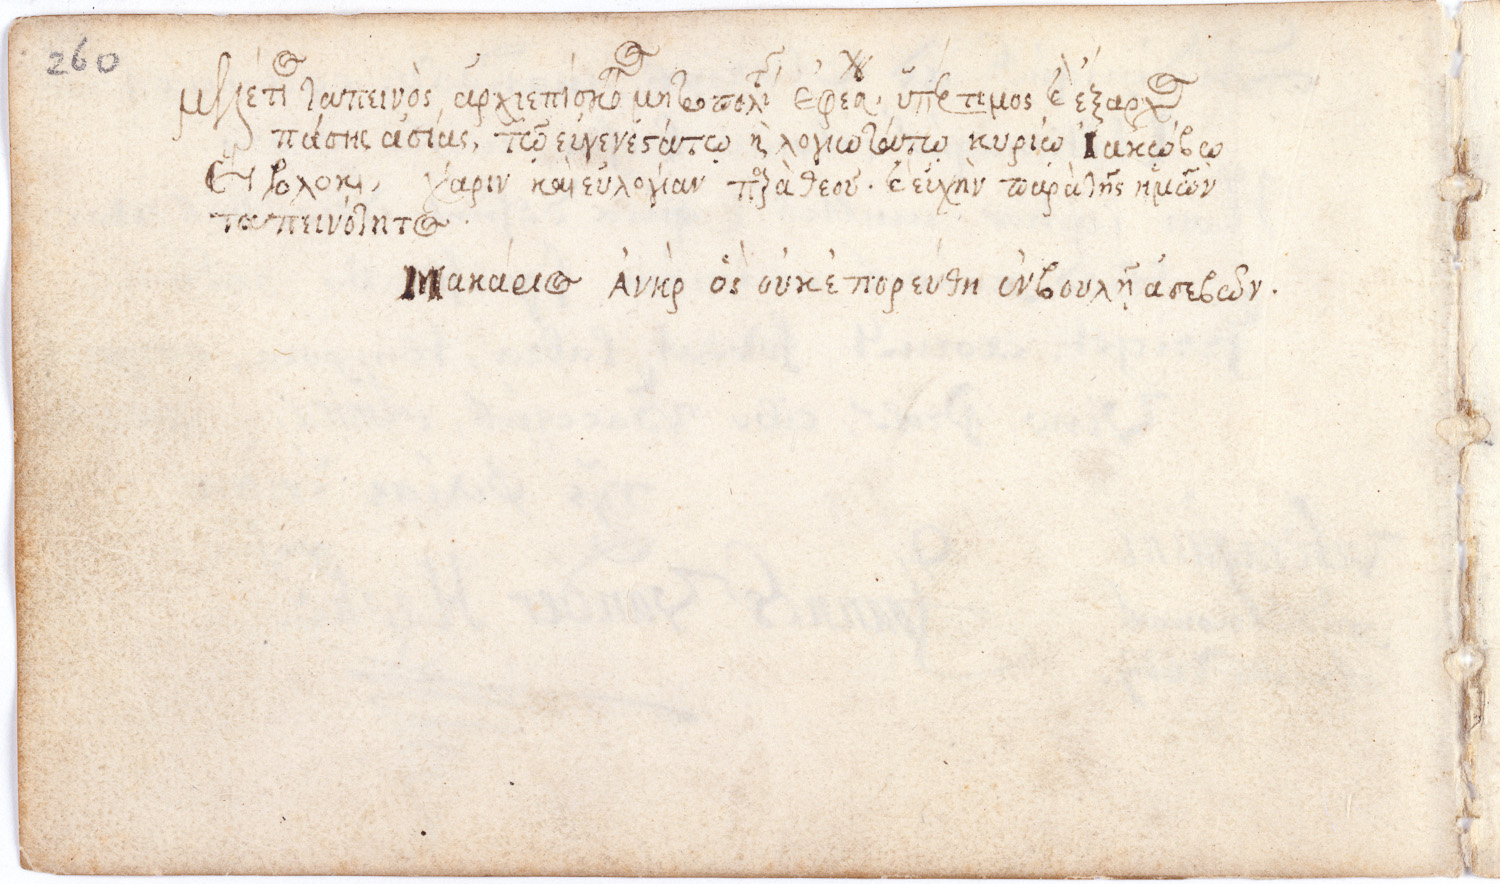 260
μελέτι ταπεινὸς ἀρχιεπίσκοπος μητροπολίτης Ἐφέσου, ὑπέρτιμος καὶ ἔξαρχος
πάσης ἀσίας, τῶ εὐγενεστάτω ἢ λογιωτάτω κυρίω Ἰακώβω
χάριν καὶ εὐλογίαν παρὰ θεοῦ. καὶ εὐχὴν παρὰ τῆς ἡμῶν
ταπεινότητος.
Μακάριος Ἀνὴρ ὃς οὐκ ἐπορεύθη ἐν βουλῇ ἀσεβῶν.